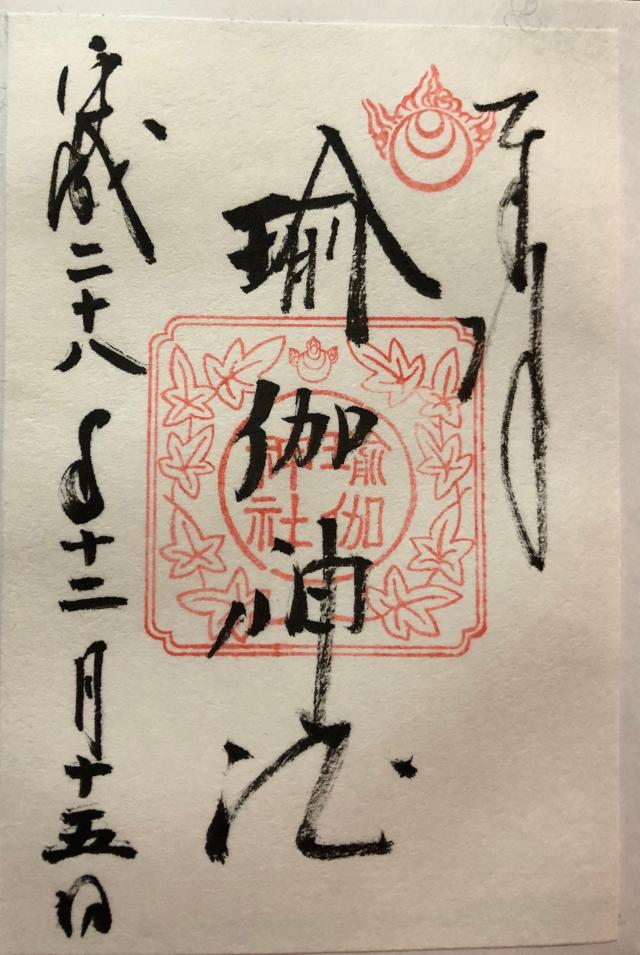 奉拝
瑜伽神社
瑜伽
神社
平成二十八年十二月十五日